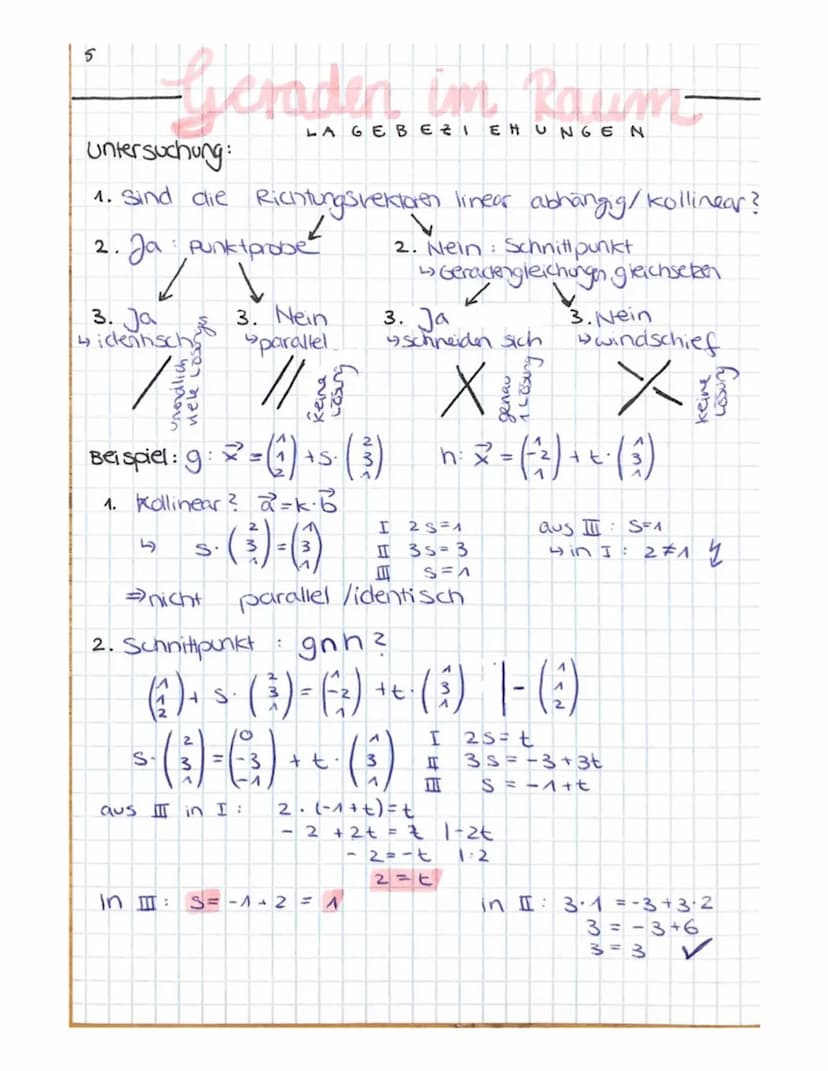 5
Geraden im Raum
LAGEBEZIEHUNGEN
Untersuchung:
1. Sind die Richtungsvektoren linear abhängig/kollinear?
2. Ja : Punktprobe
2. Nein : Schnittpunkt
↳ Geradengleichungen gleichsetzen
3. Ja
↳ identisch
unendlich viele Lösungs
3. Nein
↳ parallel
keine Lösung
3. Ja
↳ schneiden sich
genau 1 Lösung
3. Nein
↳ windschief
keine Lösung
Beispiel: g: x⃗ = (1 1 2) + s · (2 3 1)   h: x⃗ = (1 -2 1) + t · (1 3 1)
1. Kollinear? a⃗ = k · b⃗
↳ s · (2 3 1) = (1 3 1)
I 2s = 1
II 3s = 3
III s = 1
aus III : s=1
↳ in I : 2 ≠ 1 ↯
⇒ nicht parallel /identisch
2. Schnittpunkt : g∩h?
(1 1 2) + s · (2 3 1) = (1 -2 1) + t · (1 3 1) | - (1 1 2)
s · (2 3 1) = (0 -3 -1) + t · (1 3 1)
I 2s = t
II 3s = -3 + 3t
III s = -1 + t
aus III in I : 2 · (-1 + t) = t
- 2 + 2t = t |-2t
- 2 = -t |:2
2 = t
in III : s = -1 + 2 = 1
in II : 3·1 = -3 + 3·2
3 = -3 + 6
3 = 3 ✓